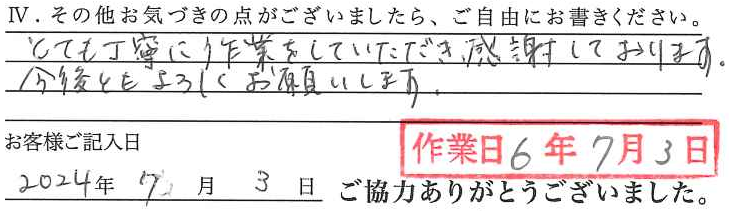 Ⅳ．その他お気づきの点がございましたら、ご自由にお書きください。
とても丁寧に作業をしていただき、感謝しております。
今後ともよろしくお願いします。
お客様ご記入日
作業日6年7月3日
2024年 7 月 3 日 ご協力ありがとうございました。